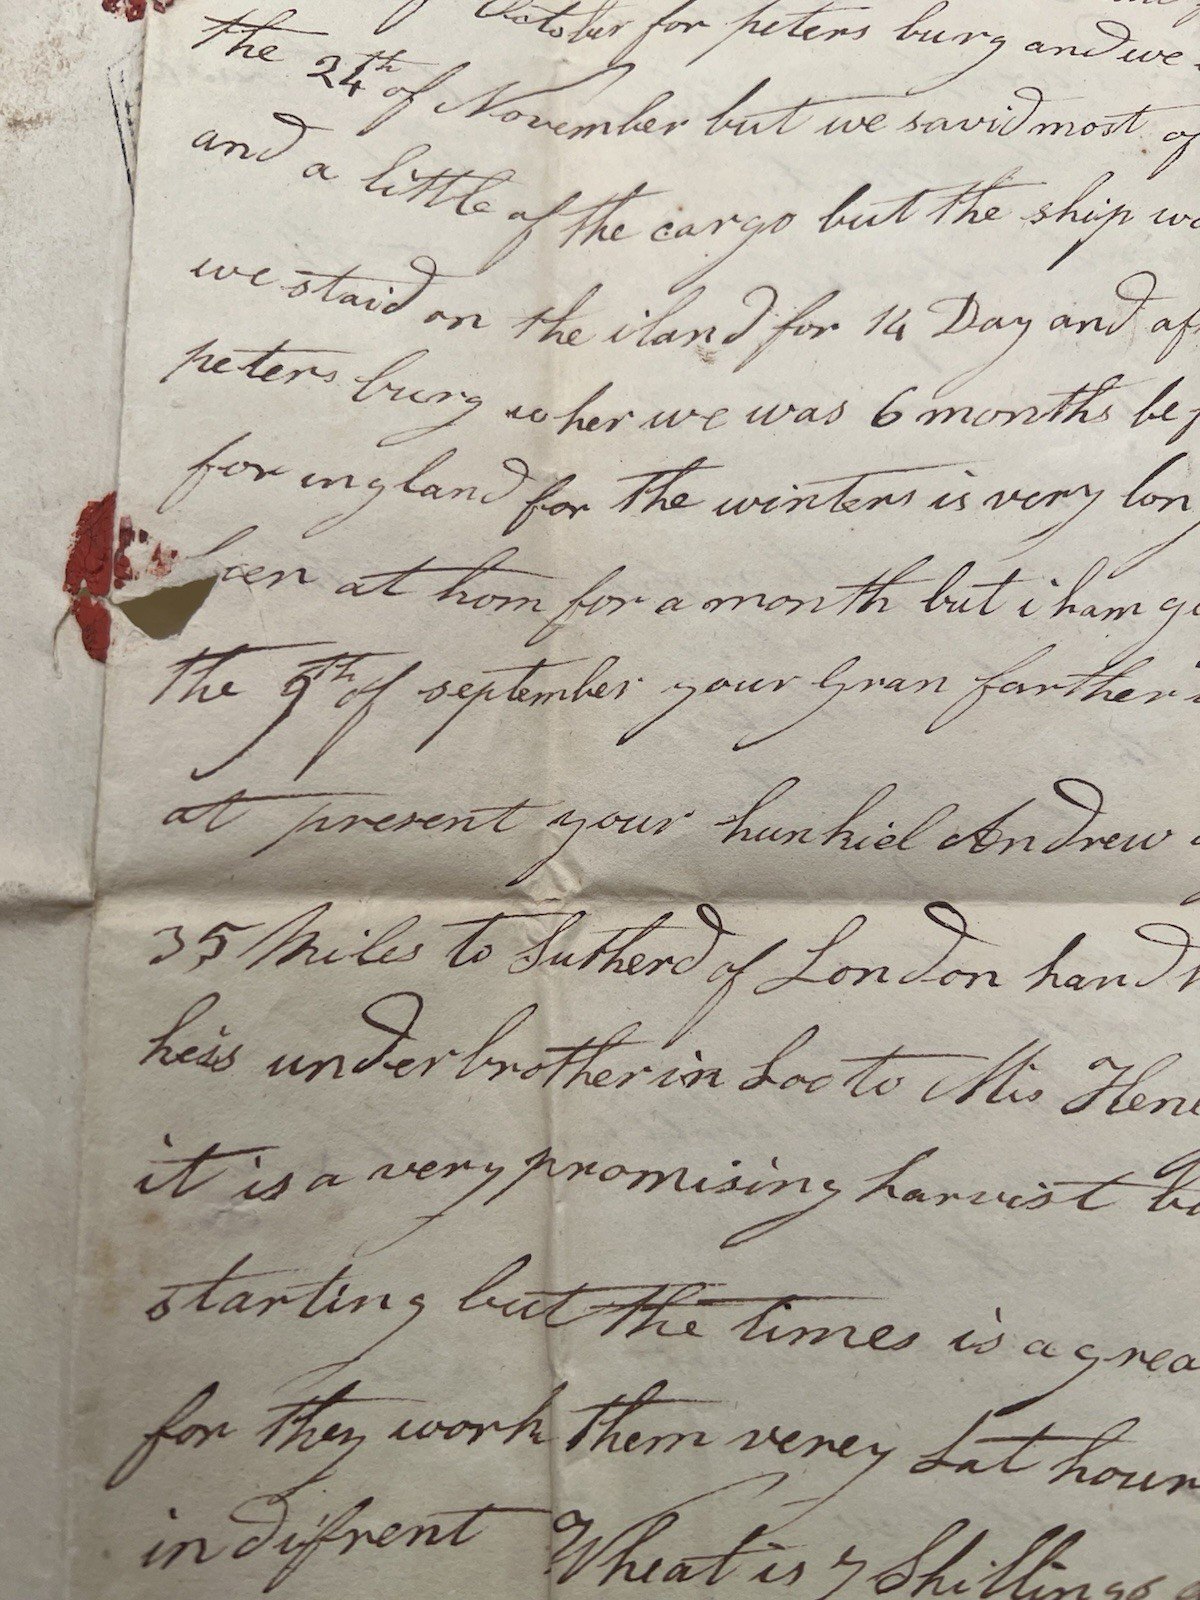 October for peters burg and we
the 24th of November but we savid most of
and a little of the cargo but the ship
we staid on the iland for 14 Day and
peters burg wher we was 6 months
for ingland for the winters is very
been at hom for a month but i ham
the 9th of september your Gran farther
at present your hunkiel Andrew
35 Miles to Sutherd of London hand
heis under brother in Loo to Mis
it is a very promising harvist
starting but the times is a
for they work them verey Lat
indifrent Wheat is 7 Shillings